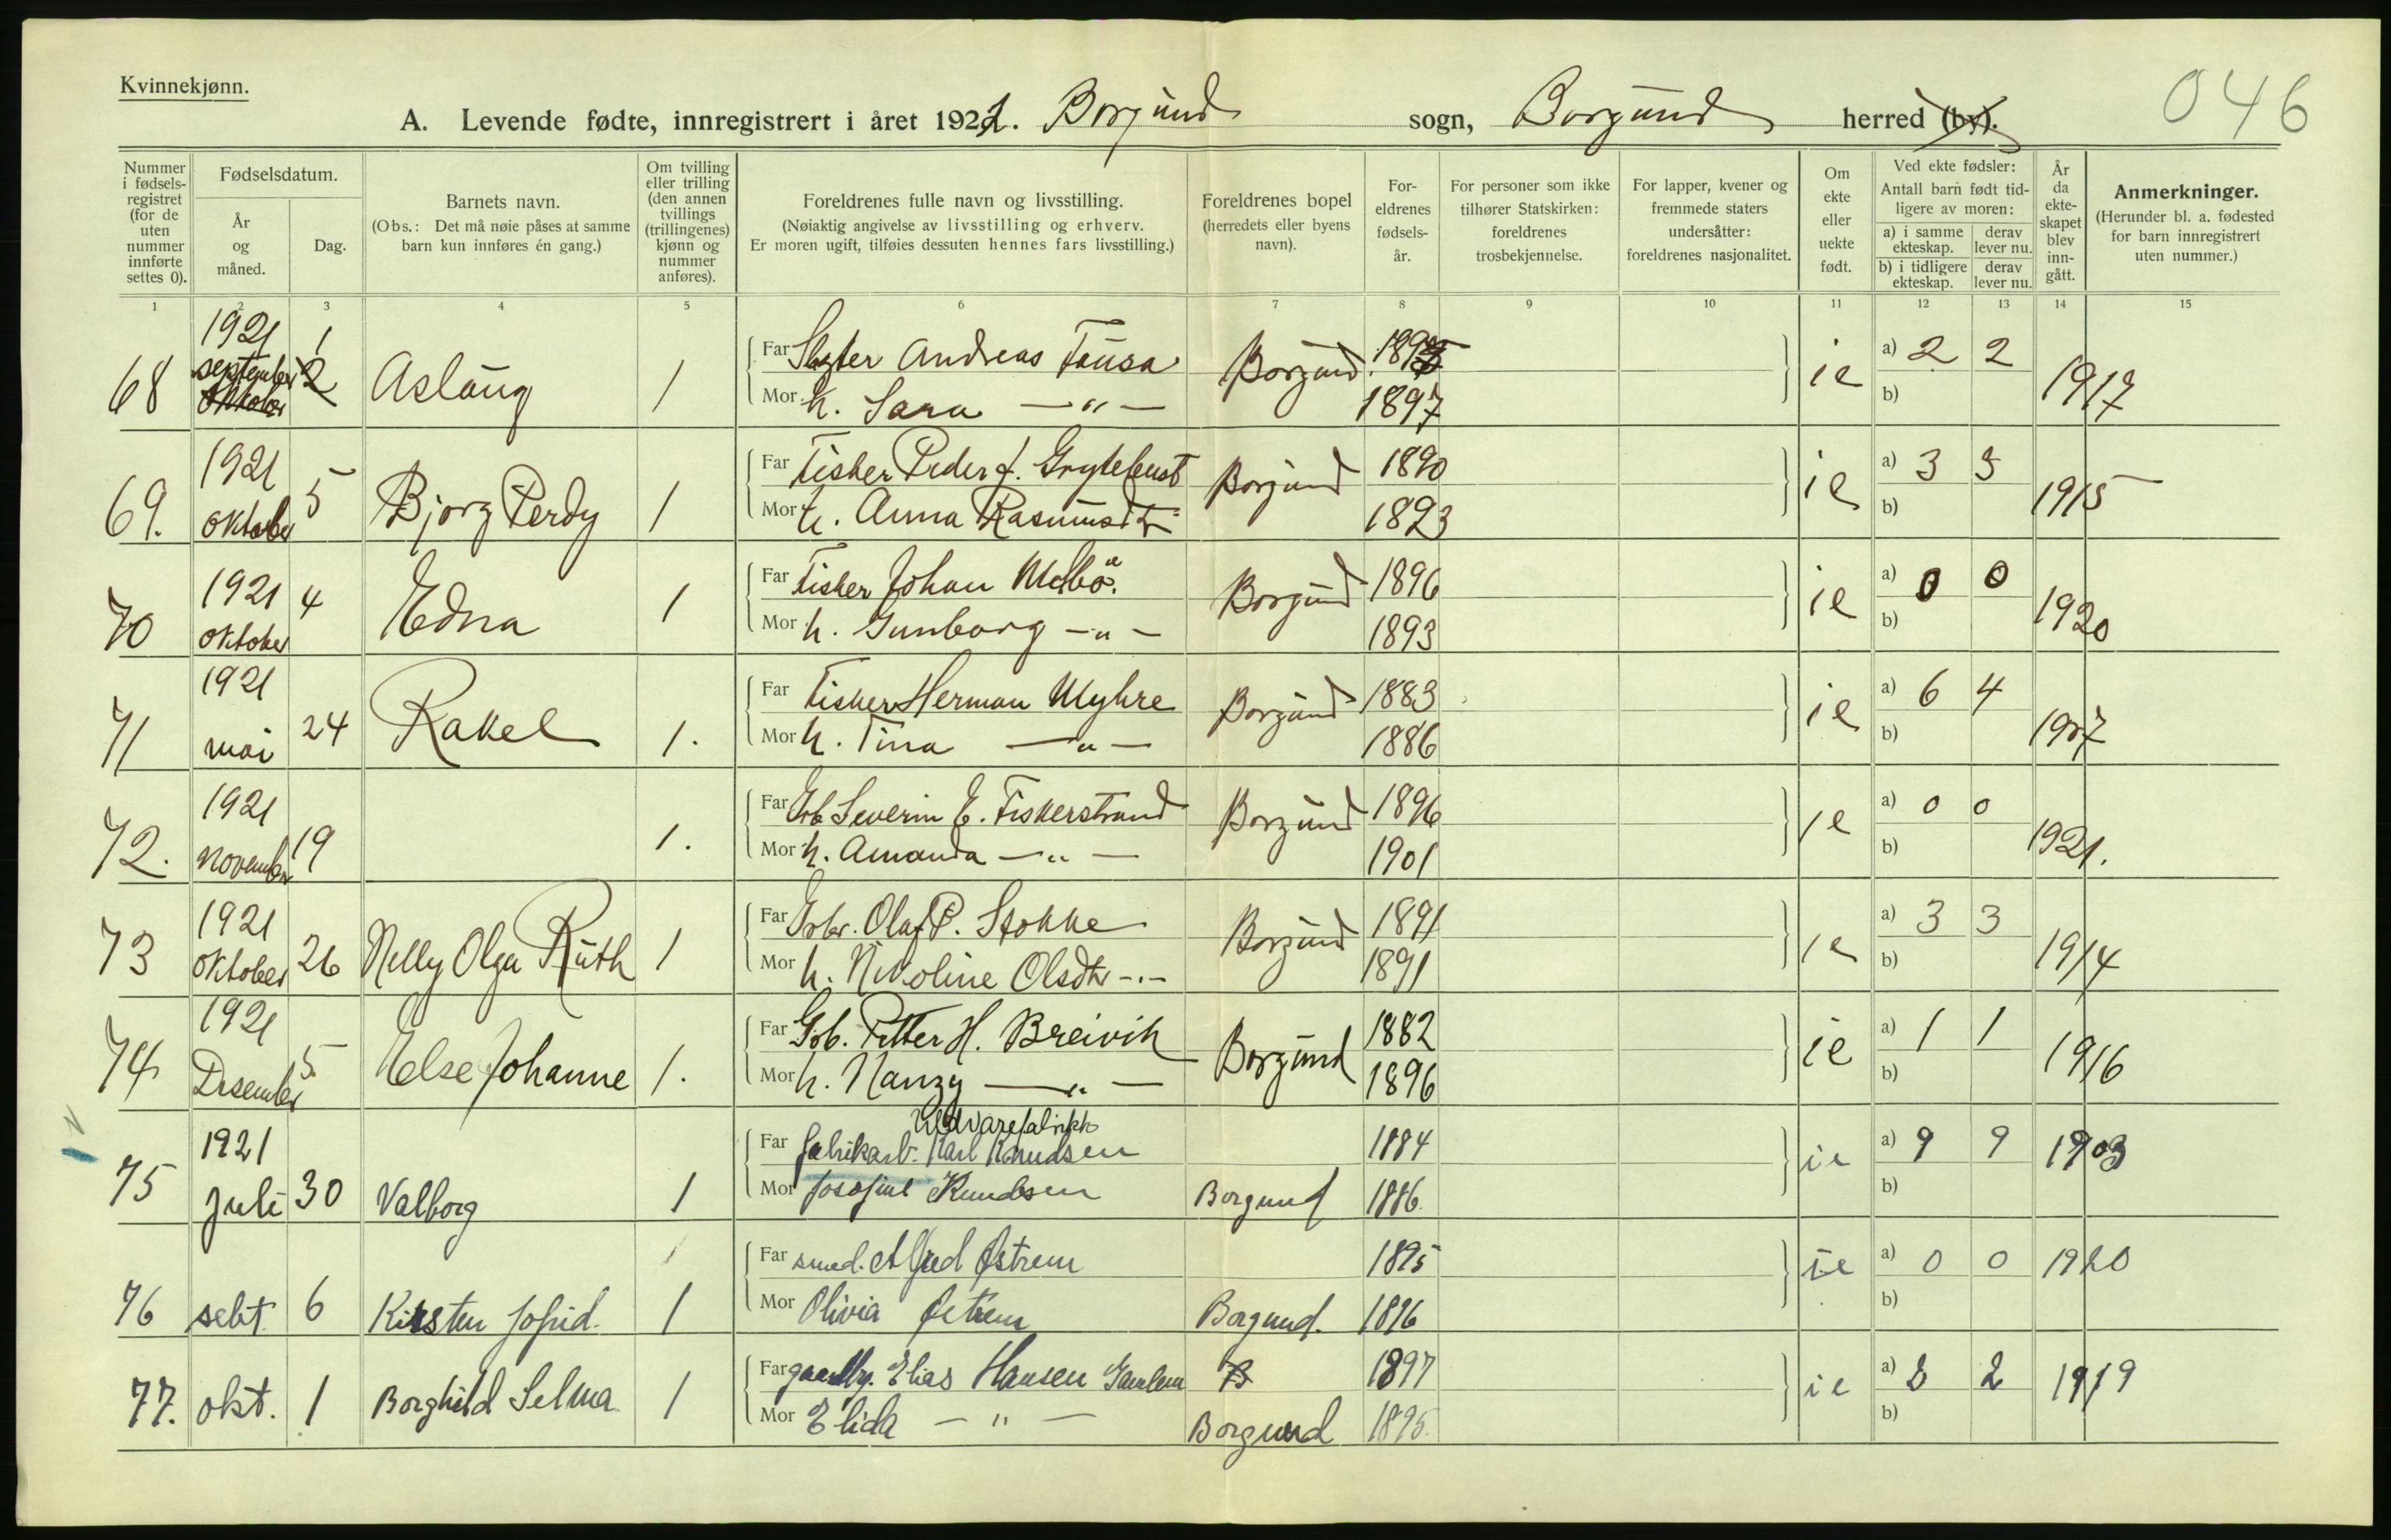 Kvinnekjønn.
046
A. Levende fødte, innregistrert i året 1921. Borgund sogn, Borgund herred (by).
Nummer i fødselsregistret (for de uten nummer innførte settes 0).
Fødselsdatum.
År og måned.
Dag.
Barnets navn.
(Obs.: Det må nøie påses at samme barn kun innføres én gang.)
Om tvilling eller trilling (den annen tvillings (trillingenes) kjønn og nummer anføres).
Foreldrenes fulle navn og livsstilling.
(Nøiaktig angivelse av livsstilling og erhverv.
Er moren ugift, tilføies dessuten hennes fars livsstilling.)
Foreldrenes bopel (herredets eller byens navn).
Foreldrenes fødselsår.
For personer som ikke tilhører Statskirken: foreldrenes trosbekjennelse.
For lapper, kvener og fremmede staters undersåtter: foreldrenes nasjonalitet.
Om ekte eller uekte født.
Ved ekte fødsler:
Antall barn født tidligere av moren:
a) i samme ekteskap. derav lever nu.
b) i tidligere ekteskap. derav lever nu.
År da ekteskapet blev inngått.
Anmerkninger.
(Herunder bl. a. fødested for barn innregistrert uten nummer.)
1 2 3 4 5 6 7 8 9 10 11 12 13 14 15
1921 1
68 september oktober 2 Aslaug 1 Far Andreas Tausa Borgund ie a) 2 2 1917
Mor h. Sara —"— 1897 b)
1921 5 Far Fisker Peder J. Grytebust Borgund 1890 ie a) 3 3 1915
69. oktober Bjorg Perdy 1 Mor h. Anna Rasmusdtr 1893 b)
1921 4 Far Fisker Johan Borgund 1896 ie a) 0 0 1920
70 oktober Edna 1 Mor h. Gunborg —"— 1893 b)
1921 Far Fisker Herman Myhre Borgund 1883 ie a) 6 4 1907
71 mai 24 Rakel 1. Mor h. Tina —"— 1886 b)
1921 Far Grb Severin E. Fiskerstrand Borgund 1896 ie a) 0 0 1921.
72. November 19 1. Mor h. Amanda —"— 1901 b)
1921 Far Grbr. Olaf P. Stokke Borgund 1891 ie a) 3 3 1914
73 oktober 26 Nelly Olga Ruth 1 Mor h. Nikoline Olsdtr —"— 1891 b)
1921 Far Grb. Petter H. Breivik Borgund 1882 ie a) 1 1 1916
74 Desember 5. Else Johanne 1. Mor h. Nanzy —"— 1896 b)
1921 Far fabrikarb. Karl Knudsen 1884 ie a) 9 9 1903
75 juli 30 Valborg 1 Mor Josefine Knudsen Borgund 1886. b)
Far smed. Alfred Østrem 1895 ie a) 0 0 1920
76 sebt. 6 Kirsten Jofrid. 1 Mor Olivia Østrem Borgund. 1896 b)
Far gaardbr. Elias Hansen Gamlem B 1897 ie a) 2 2 1919
77. okt. 1 Borghild Selma. 1 Mor Elida —"— Borgund 1895. b)